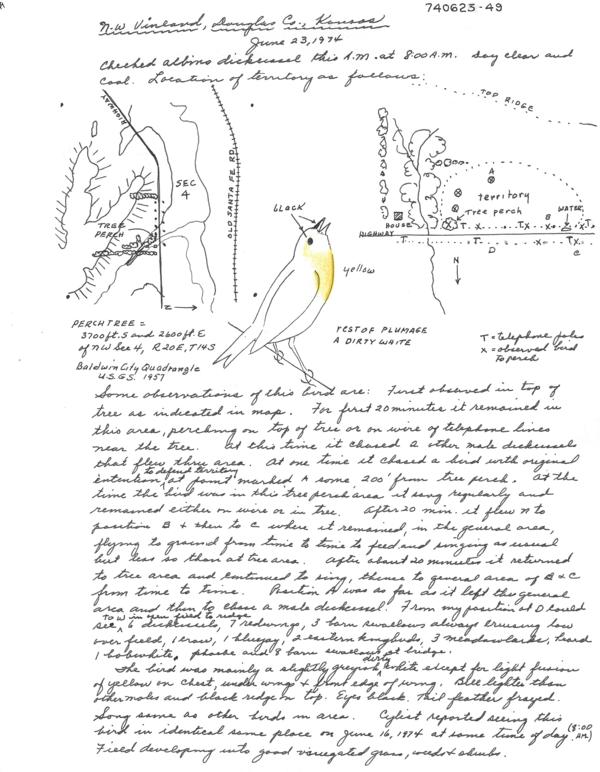 740623-49
N.W Vinland, Douglas Co., Kansas
June 23, 1974
Checked albino dickcissel this A.M. at 8:00 A.M. Day clear and
cool. Location of territory as follows:
TOP RIDGE
HIGHWAY
SEC
4
OLD SANTA FE RD.
TREE
PERCH
N
BLACK
yellow
REST OF PLUMAGE
A DIRTY WHITE
A
territory
Tree perch
WATER
HOUSE
HIGHWAY
T
T
TX
X
B
X
TX
D
C
N
T = telephone poles
X = observed bird
to perch
PERCH TREE =
3700 ft. S and 2600 ft. E
of NW Sec 4, R20E, T14S
Baldwin City Quadrangle
U.S.G.S. 1957
Some observations of this bird are: First observed in top of
tree as indicated in map. For first 20 minutes it remained in
this area, perching on top of tree or on wire of telephone lines
near the tree. At this time it chased 2 other male dickcissels
that flew thru area. At one time it chased a bird with original
to defend territory
entention at point marked A some 200' from tree perch. At the
time the bird was in this tree perch area it sang regularly and
remained either on wire or in tree. After 20 min. it flew N to
position B & then to C where it remained, in the general area,
flying to ground from time to time to feed and singing as usual
but less so than at tree area. After about 20 minutes it returned
to tree area and continued to sing, thence to general area of B & C
from time to time. Position A was as far as it left the general
area and then to chase a male dickcissel. From my position at D could
To W in view field to ridge
see 6 dickcissels, 7 redwings, 3 barn swallows always cruising low
over field, 1 crow, 1 bluejay, 2 eastern kingbirds, 3 meadowlarks, heard
1 bobwhite, phoebe and 8 barn swallows at bridge.
dirty
The bird was mainly a slightly greyish white except for light fusion
of yellow on chest, under wing & front edge of wing. Bill lighter than
other males and black ridge on top. Eyes black. Tail feather frayed.
Song same as other birds in area. Cyclist reported seeing this
bird in identical same place on June 16, 1974 at same time of day (8:00 AM.)
Field developing into good variegated grass, weeds & shrubs.